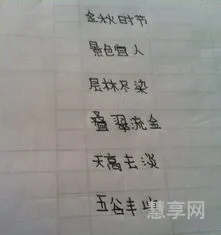 金秋时节
景色宜人
层林尽染
叠翠流金
天高云淡
五谷丰
慧享网